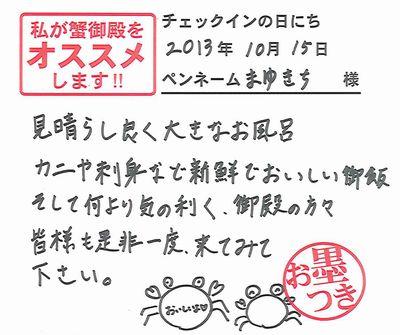 私が蟹御殿を
オススメ
します!!
チェックインの日にち
2013年 10月 15日
ペンネーム まゆきち 様
見晴らし良く大きなお風呂
カニや刺身など新鮮でおいしい御飯
そして何より気の利く、御殿の方々
皆様も是非一度、来てみて
下さい。
おいしいよ♡
お墨つき